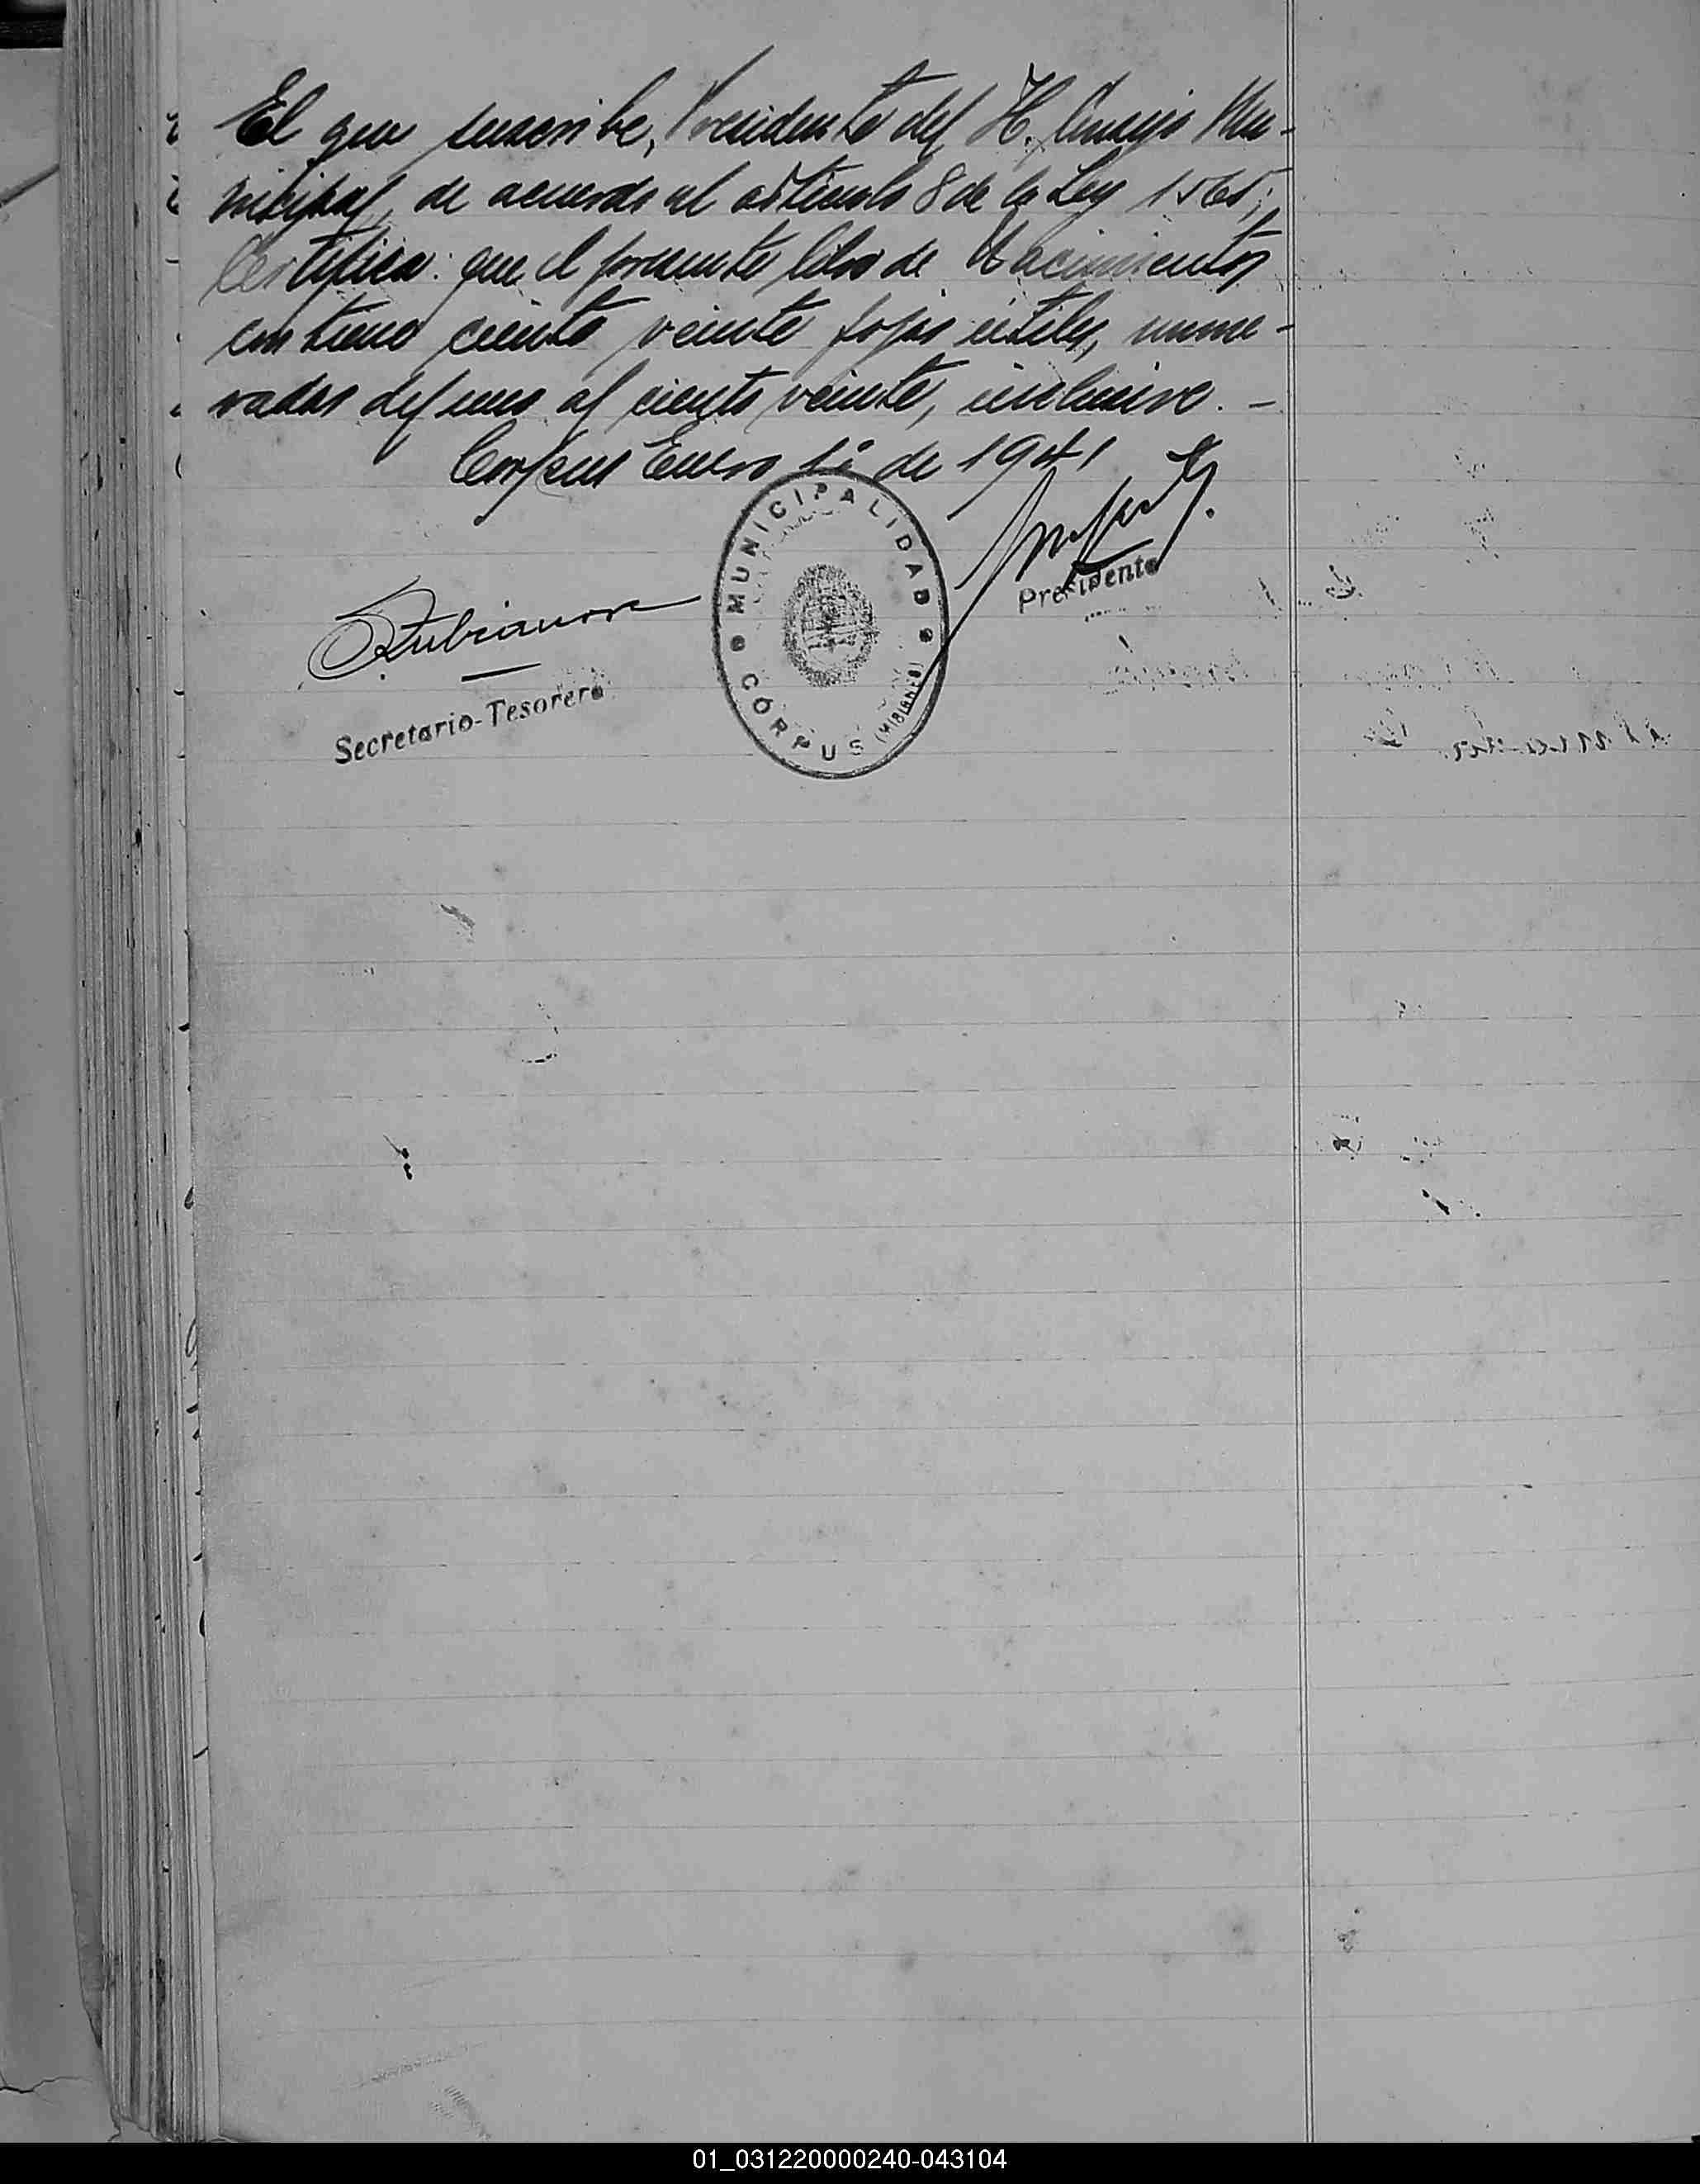 El que suscribe, Presidente del H. Concejo Mu-
nicipal, de acuerdo al artículo 8 de la Ley 1565;
Certifica: que el presente libro de Nacimientos
contiene ciento veinte fojas útiles, nume-
radas del uno al ciento veinte, inclusive. -
Corpus Enero 1º de 1941
MUNICIPALIDAD
CÓRPUS (MISIONES)
Presidente
Secretario-Tesorero
01_031220000240-043104